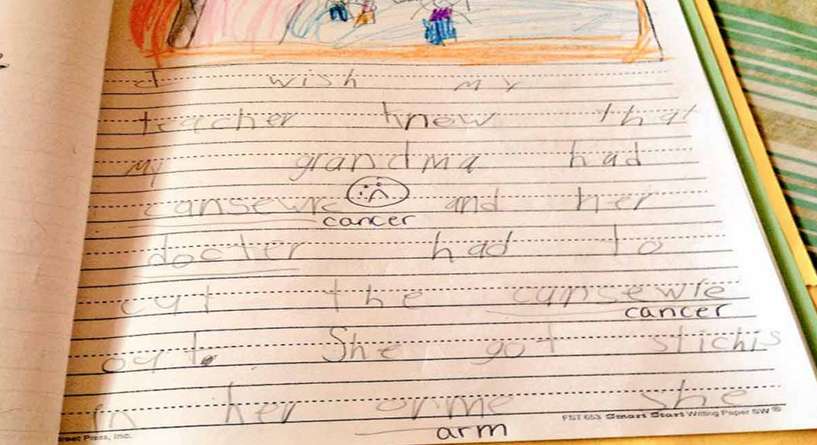 I wish my
teacher knew that
my grandma had
cansewre and her
cancer
docter had to
cut the cansewre
cancer
out. She got stichis
in her orme she
arm
Street Press, Inc. PST 653 Smart Start Writing Paper SW®